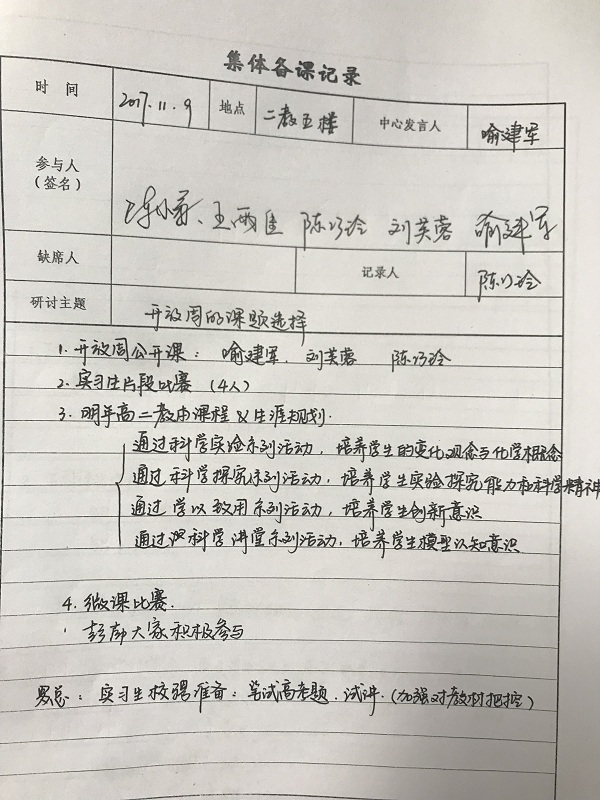 集体备课记录
时间 2017.11.9 地点 二教五楼 中心发言人 喻建军
参与人
(签名)
王雨佳 陈巧玲 刘芙蓉 喻建军
缺席人 记录人 陈巧玲
研讨主题 开放周的课题选择
1. 开放周公开课: 喻建军. 刘芙蓉 陈巧玲
2. 实习生片段比赛 (4人)
3. 明年高二教本课程 & 生涯规划.
通过科学实验系列活动, 培养学生的变化观念与化学相概念
通过科学探究系列活动, 培养学生实验探究能力和科学精神
通过学以致用系列活动, 培养学生创新意识
通过 科学讲堂系列活动, 培养学生模型认知意识
4. 微课比赛.
大家积极参与
实习生校 准备: 笔试高考题. 试讲. (加强对教材把控)